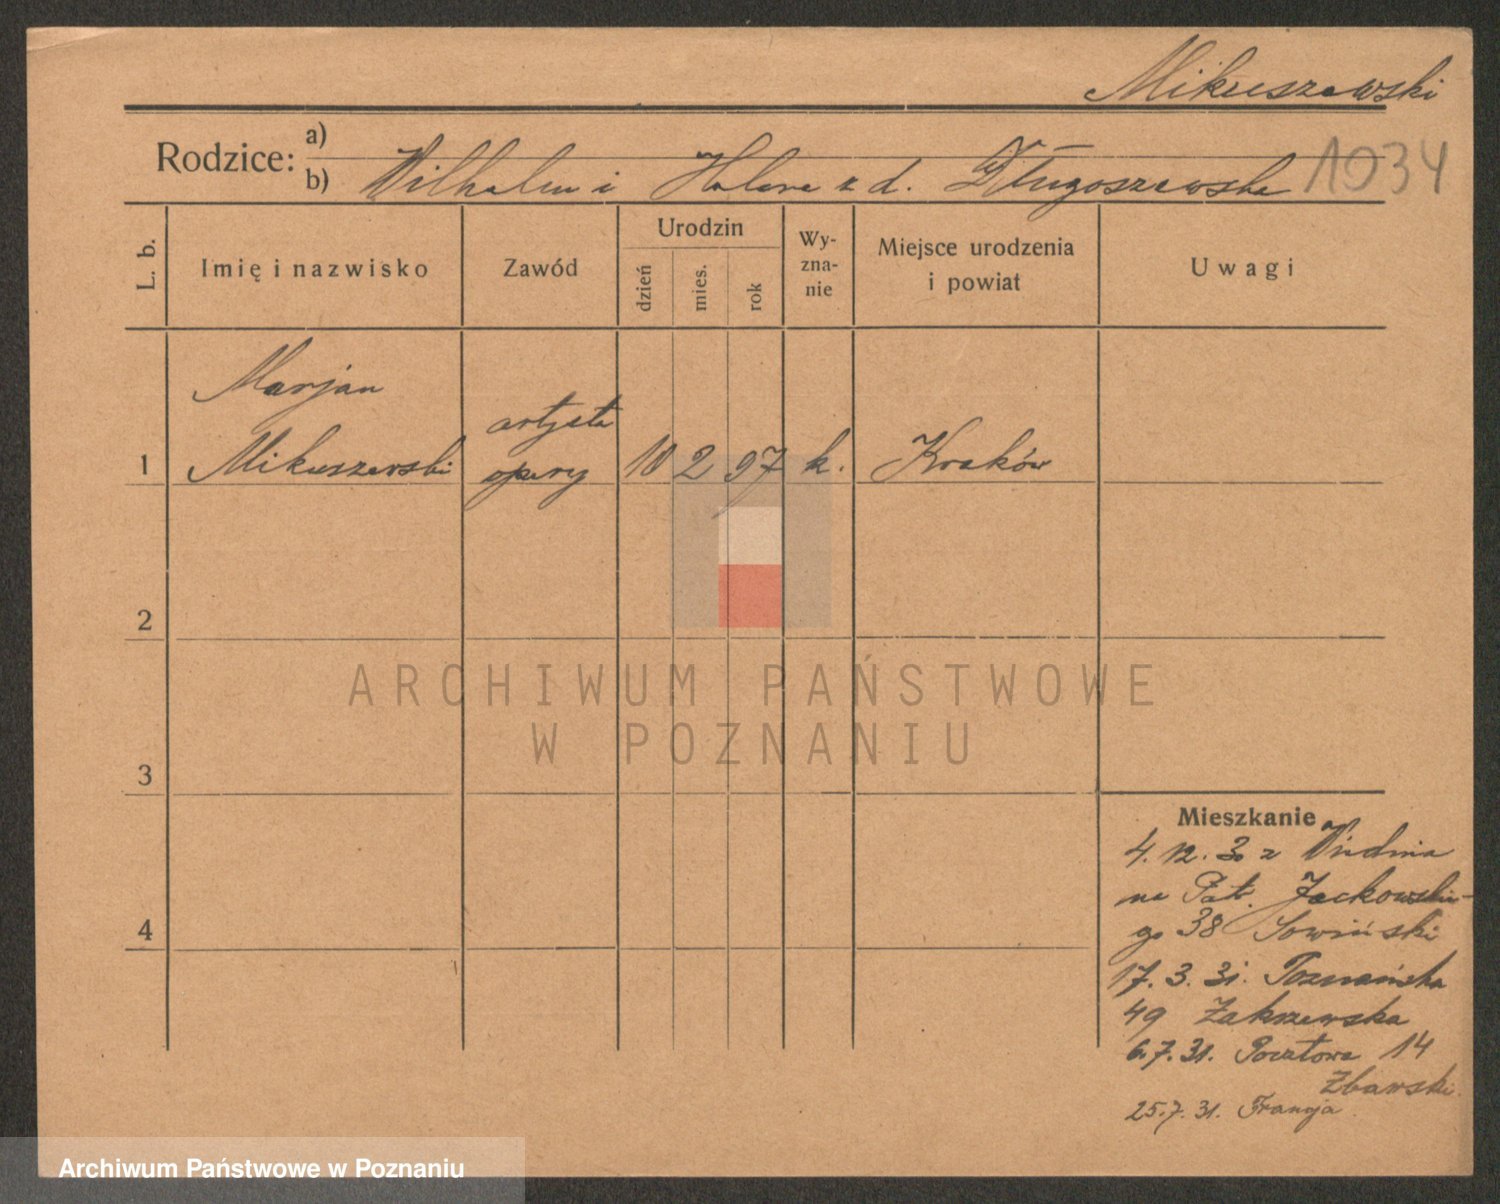 Mikuszewski
Rodzice: a)
b) Wilhelm i Helena z d. Długoszewska 1034
L. b. Imię i nazwisko Zawód Urodzin dzień mies. rok Wyzna-nie Miejsce urodzenia i powiat Uwagi
Marjan
artysta
1 Mikuszewski opery 10 2 97 k. Kraków
2
3
4
Mieszkanie
4. 12. 30 z Wiednia
na Patr. Jackowskie-
go 38 Sowiński
17. 3. 31. Poznańska
49 Zakrzewska
6. 7. 31. Pocztowa 14
Zbawski.
25. 7. 31. Francja
ARCHIWUM PAŃSTWOWE
W POZNANIU
Archiwum Państwowe w Poznaniu